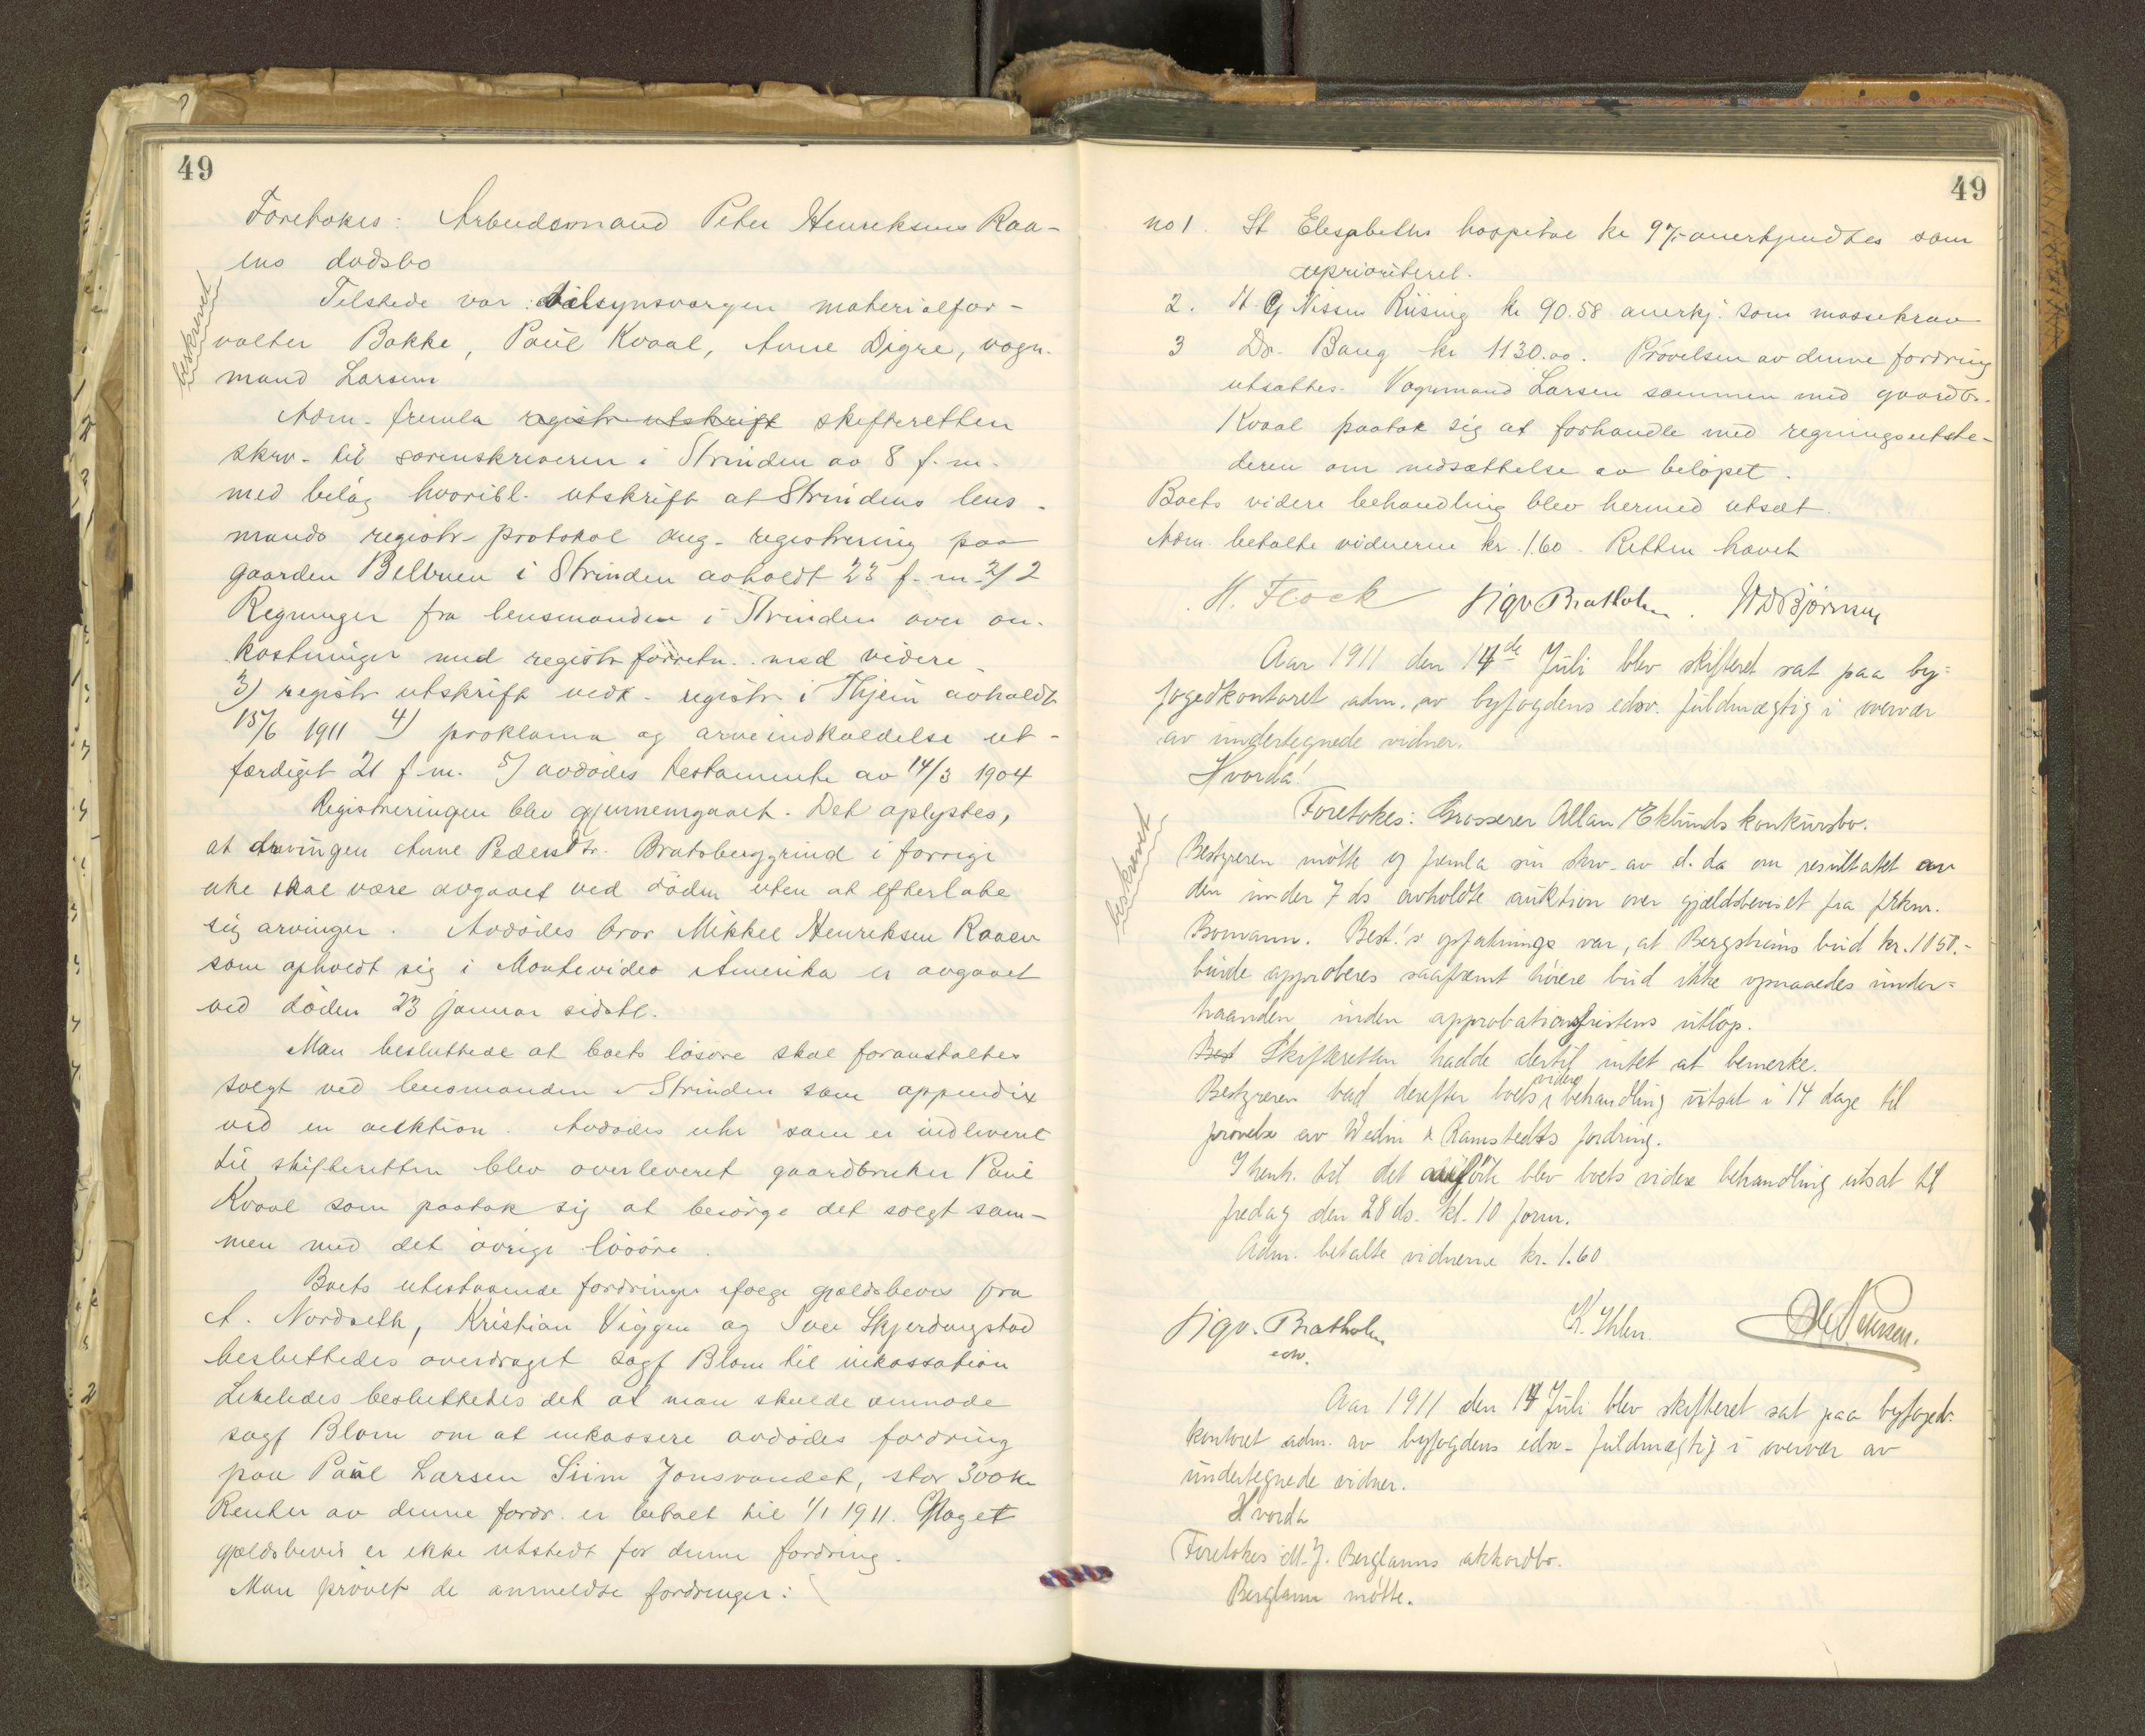 49
Foretokes: Arbeidsmand Peter Henriksens Raa-
ens dødsbo
beskrevet
Tilstede var: tilsynsvergen materialfor-
valter Bakke, Paul Kvaal, Anne Digre, vogn-
mand Larsen
Adm. fremla registr utskrift skifteretten
skrv. til sorenskriveren i Strinden av 8 f. m.
med bilag hvoribl. utskrift at Strindens lens-
mands registr. protokol ang. registrering paa
gaarden Belbuen i Strinden avholdt 23 f. m. 2/ 2
Regninger fra lensmanden i Strinden over om-
kostninger med registr forretn. med videre
3) registr utskrift vedk. registr. i Thjem avholdt
15/6 1911 4) proklama og arveindkaldelse ut-
færdiget 21 f. m. 5) avdødes testamente av 14/3 1904
Registreringen blev gjennemgaaet. Det oplystes,
at arvingen Anne Pedersdtr. Bratsberggrind i forrige
uke skal være avgaaet ved døden uten at efterlate
sig arvinger. Avdødes bror Mikkel Henriksen Raaen
som opholdt sig i Montevideo Amerika er avgaaet
ved døden 23 januar sidstl.
Man besluttede at boets løsøre skal foranstaltes
solgt ved lensmanden i Strinden som appendix
ved en auktion. Avdødes uhr som er indleveret
til skifteretten blev overleveret gaardbruker Paul
Kvaal som paatok sig at besørge det solgt sam-
men med det øvrige løsøre.
Boets utestaaende fordringer ifølge gjældsbevis fra
A. Nordseth, Kristian Viggen og Iver Skjerdingstad
besluttedes overdraget sagf Blom til inkassation
Likeledes besluttedes det at man skulde anmode
sagf Blom om at inkassere avdødes fordring
paa Paul Larsen Siim Jonsvandet, stor 300 kr
Renter av denne fordr. er betalt til 1/1 1911. Noget
gjældsbevis er ikke utstedt for denne fordring.
Man prøvet de anmeldte fordringer:
49
no 1. St Elisabeths hospital kr 97,- anerkjendtes som
uprioriteret.
2. H. G Nissen Riising kr 90.58 anerkj. som massekrav
3 Dr. Bang kr 1130.00. Prøvelsen av denne fordring
utsattes. Vognmand Larsen sammen med gaardbr.
Kvaal paatok sig at forhandle med regningsutste-
deren om nedsættelse av beløpet.
Boets videre behandling blev hermed utsat.
Adm. betalte vidnerne kr. 1.60. Retten hævet
H. Flock Sigv Bratholm. W D Bjørnsen
Aar 1911 den 14de Juli blev skifteret sat paa by-
fogedkontoret adm. av byfogdens edsv. fuldmægtig i overvær
av undertegnede vidner.
Hvorda!
beskrevet
Foretokes: Grosserer Allan Eklunds konkursbo.
Bestyreren møtte og fremla sin skrv. av d. da om resultatet av
den under 7 ds avholdte auktion over gjældsbeviset fra frknr.
Bomann. Best.'s opfatninge var, at Bergstrøms bud kr. 1050.-
burde approberes saafremt høiere bud ikke opnaaedes under-
haanden inden approbationsfristens utløp.
Best Skifteretten hadde dertil intet at bemerke.
Bestyreren bad derefter boets videre behandling utsat i 14 dage til
prøvelse av Wedin & Ramstedts fordring.
I henh. til det anførte blev boets videre behandling utsat til
fredag den 28 ds. kl. 10 form.
Adm. betalte vidnerne kr. 1.60
Sigv. Bratholm K. Ihlen. Ole Petersen.
edv.
Aar 1911 den 14 Juli blev skifteret sat paa byfoged-
kontoret adm. av byfogdens edsv- fuldmægtig i overvær av
undertegnede vidner.
Hvorda
Foretokes M. J. Berglanns akkordbo.
Berglann møtte.